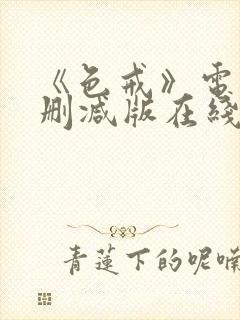 《色戒》电
删减版在线
青莲下的呢喃